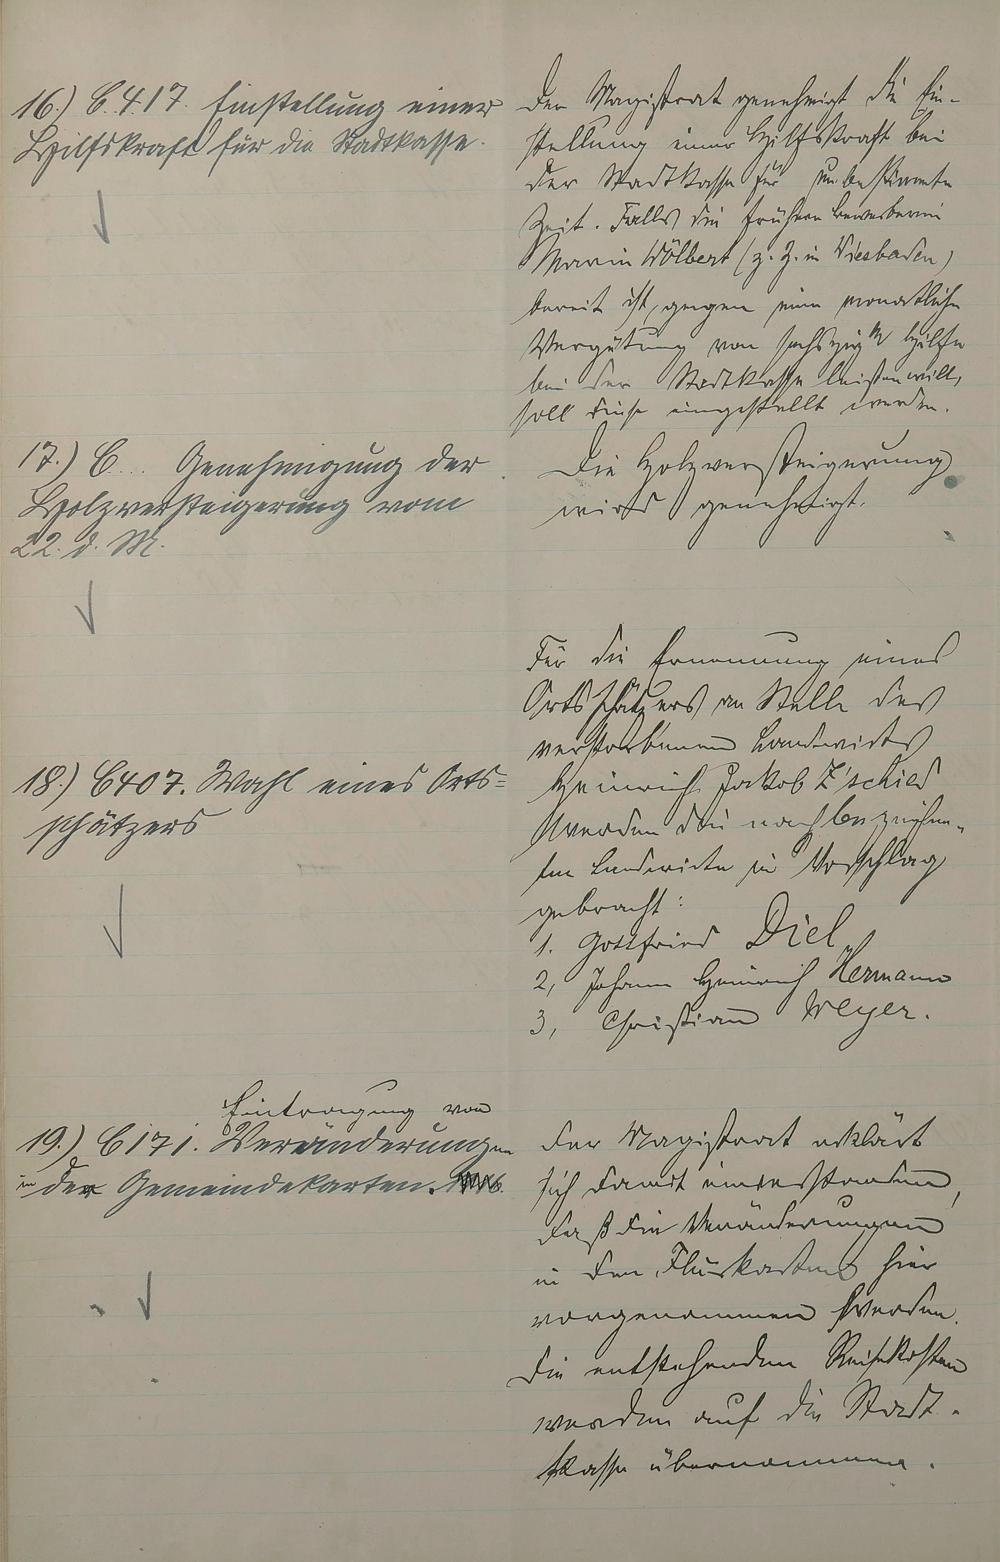 16.) C. 417. Einstellung einer
Hilfskraft für die Stadtkasse.
Der Magistrat genehmigt die Ein-
stellung einer Hilfskraft bei
der Stadtkasse für unbestimmte
Zeit. Falls die frühere Bewerberin
Marie Wölbert (z. Z. in Wiesbaden)
bereit ist, gegen eine monatliche
Vergütung von sechszig M Hülfe
bei der Stadtkasse leisten will,
soll diese eingestellt werden.
17.) C... Genehmigung der
Holzversteigerung vom
22. d. M.
Die Holzversteigerung
wird genehmigt.
18.) C 407. Wahl eines Orts=
schätzers
Für die Ernennung eines
Ortsschätzers an Stelle des
verstorbenen Landwirts
Heinrich Jakob Z'schied
werden die nachbezeichne-
ten Landwirte in Vorschlag
gebracht:
1. Gottfried Diel
2, Johann Heinrich Hermann
3, Christian Weyer.
Eintragung von
19.) C 171. Veränderungen
in der Gemeindekarten.
Der Magistrat erklärt
sich damit einverstanden,
daß die Veränderungen
in den Flurkarten hier
vorgenommen werden.
Die entstehenden Reisekosten
werden auf die Stadt-
kasse übernommen.